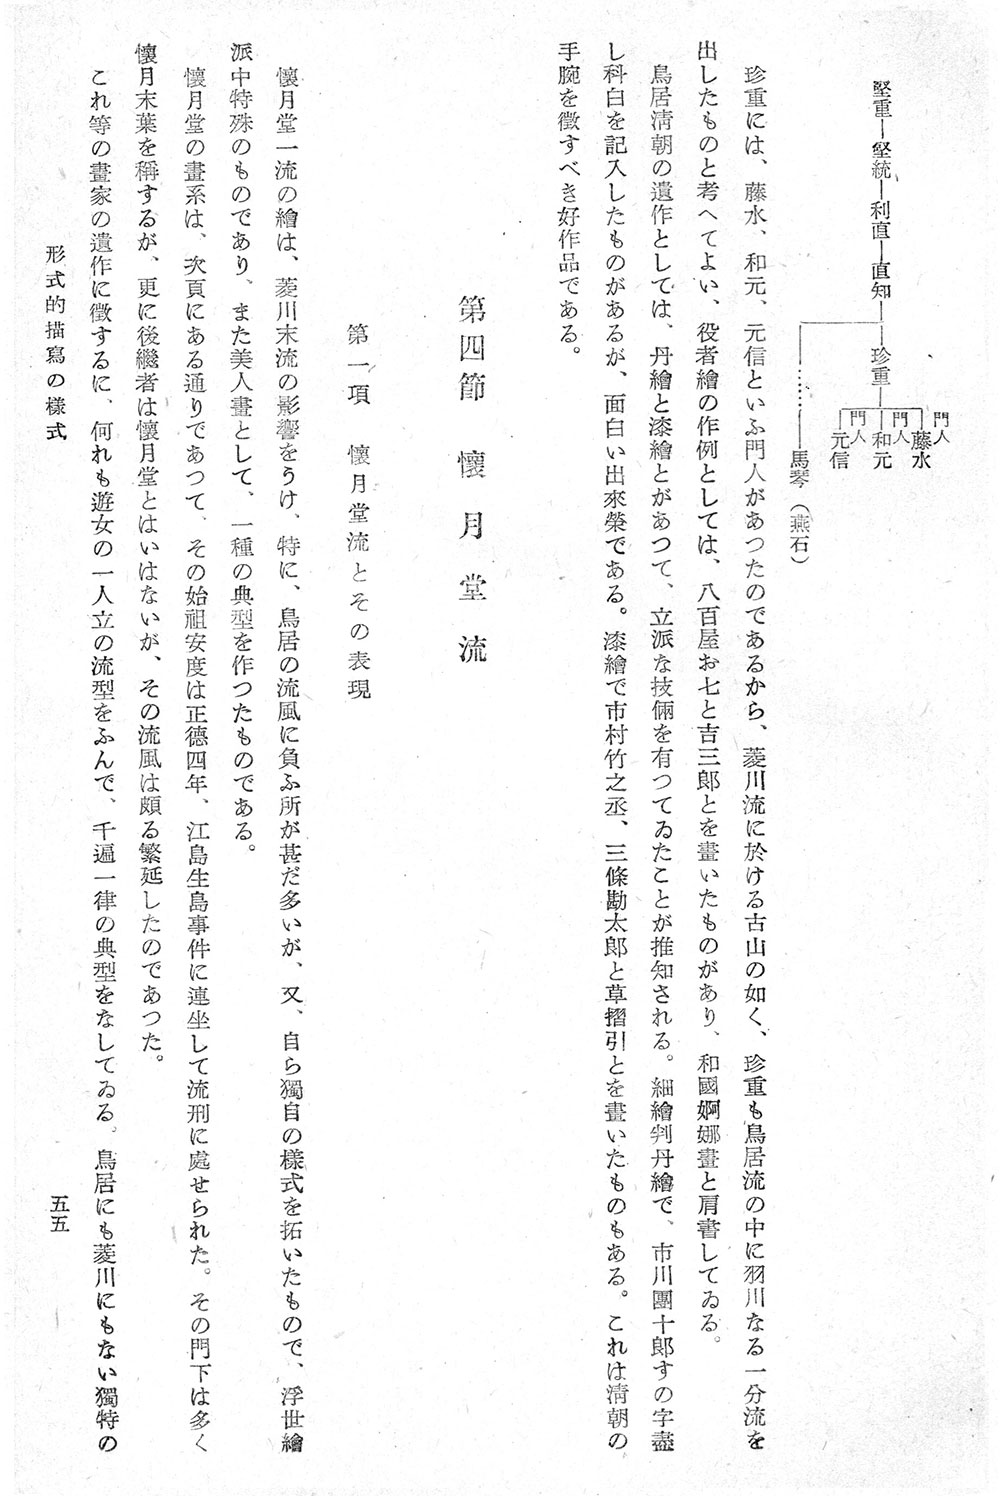 堅重―堅統―利直―直知―
―珍重―
門人
藤水
門人
和元
門人
元信
……馬琴（燕石）
珍重には、藤水、和元、元信といふ門人があつたのであるから、菱川流に於ける古山の如く、珍重も鳥居流の中に羽川なる一分流を
出したものと考へてよい、役者繪の作例としては、八百屋お七と吉三郎とを畫いたものがあり、和國婀娜畫と肩書してゐる。
鳥居淸朝の遺作としては、丹繪と漆繪とがあつて、立派な技倆を有つてゐたことが推知される。細繪判丹繪で、市川團十郎すの字盡
し科白を記入したものがあるが、面白い出來榮である。漆繪で市村竹之丞、三條勘太郎と草摺引とを畫いたものもある。これは淸朝の
手腕を徵すべき好作品である。
第四節　懷月堂流
第一項　懷月堂流とその表現
懷月堂一流の繪は、菱川末流の影響をうけ、特に、鳥居の流風に負ふ所が甚だ多いが、又、自ら獨自の樣式を拓いたもので、浮世繪
派中特殊のものであり、また美人畫として、一種の典型を作つたものである。
懷月堂の畫系は、次頁にある通りであつて、その始祖安度は正德四年、江島生島事件に連坐して流刑に處せられた。その門下は多く
懷月末葉を稱するが、更に後繼者は懷月堂とはいはないが、その流風は頗る繁延したのであつた。
これ等の畫家の遺作に徵するに、何れも遊女の一人立の流型をふんで、千遍一律の典型をなしてゐる。鳥居にも菱川にもない獨特の
形式的描寫の樣式
五五